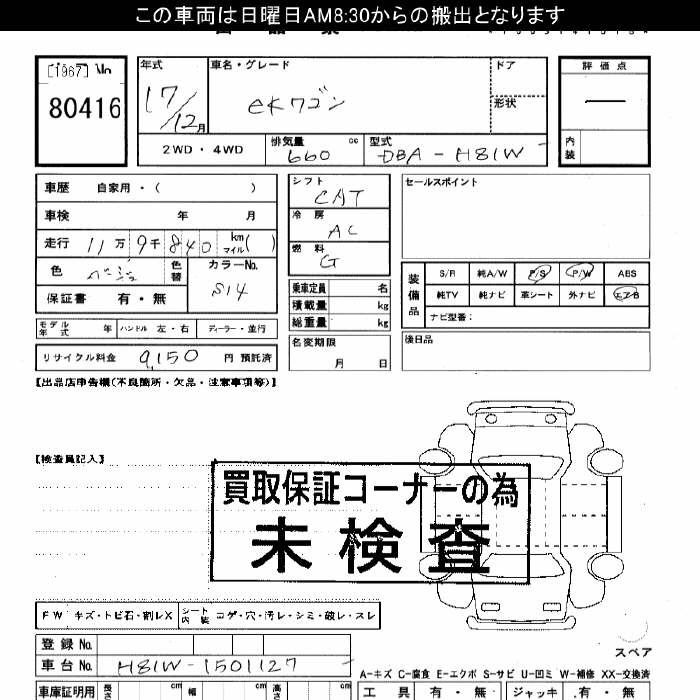 この車両は日曜日AM8:30からの搬出となります
[1967] No
80416
年式
17/12月
車名・グレード
eKワゴン
ドア
形状
2WD・4WD
排気量 cc
660
型式
DBA-H81W
評価点
内装
車歴 自家用・( )
車検 年 月
走行 11万 9千 840 km マイル( )
色 ベージュ 色替
カラーNo.
S14
保証書 有・無
モデル年式 年 ハンドル 左・右 ディーラー・並行
リサイクル料金 9,150 円 預託済
シフト
CAT
冷房
AC
燃料
G
乗車定員 名
積載量 kg
総重量 kg
名変期限
月 日
セールスポイント
装備品
S/R 純A/W P/S P/W ABS
純TV 純ナビ 革シート 外ナビ エアB
ナビ型番:
後日品
【出品店申告欄(不良箇所・欠品・注意事項等)】
【検査員記入】
買取保証コーナーの為
未検査
FW キズ・トビ石・割レX シート内装 コゲ・穴・汚レ・シミ・破レ・スレ
登録No.
車台No. H81W-1501127
スペア
A-キズ C-腐食 E-エクボ S-サビ U-凹ミ W-補修 XX-交換済
車庫証明用 長さ cm 幅 cm 高さ cm
工具 有・無 ジャッキ 有・無